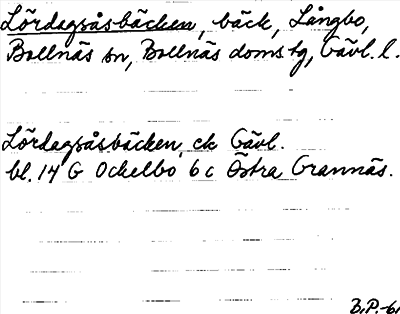 Lördagsåsbäcken, bäck, Långbo,
Bollnäs sn, Bollnäs doms tg, Gävl. l.
Lördagsåsbäcken, ek Gävl.
bl. 14 G Ockelbo 6 c Östra Grannäs.
B.P.-61